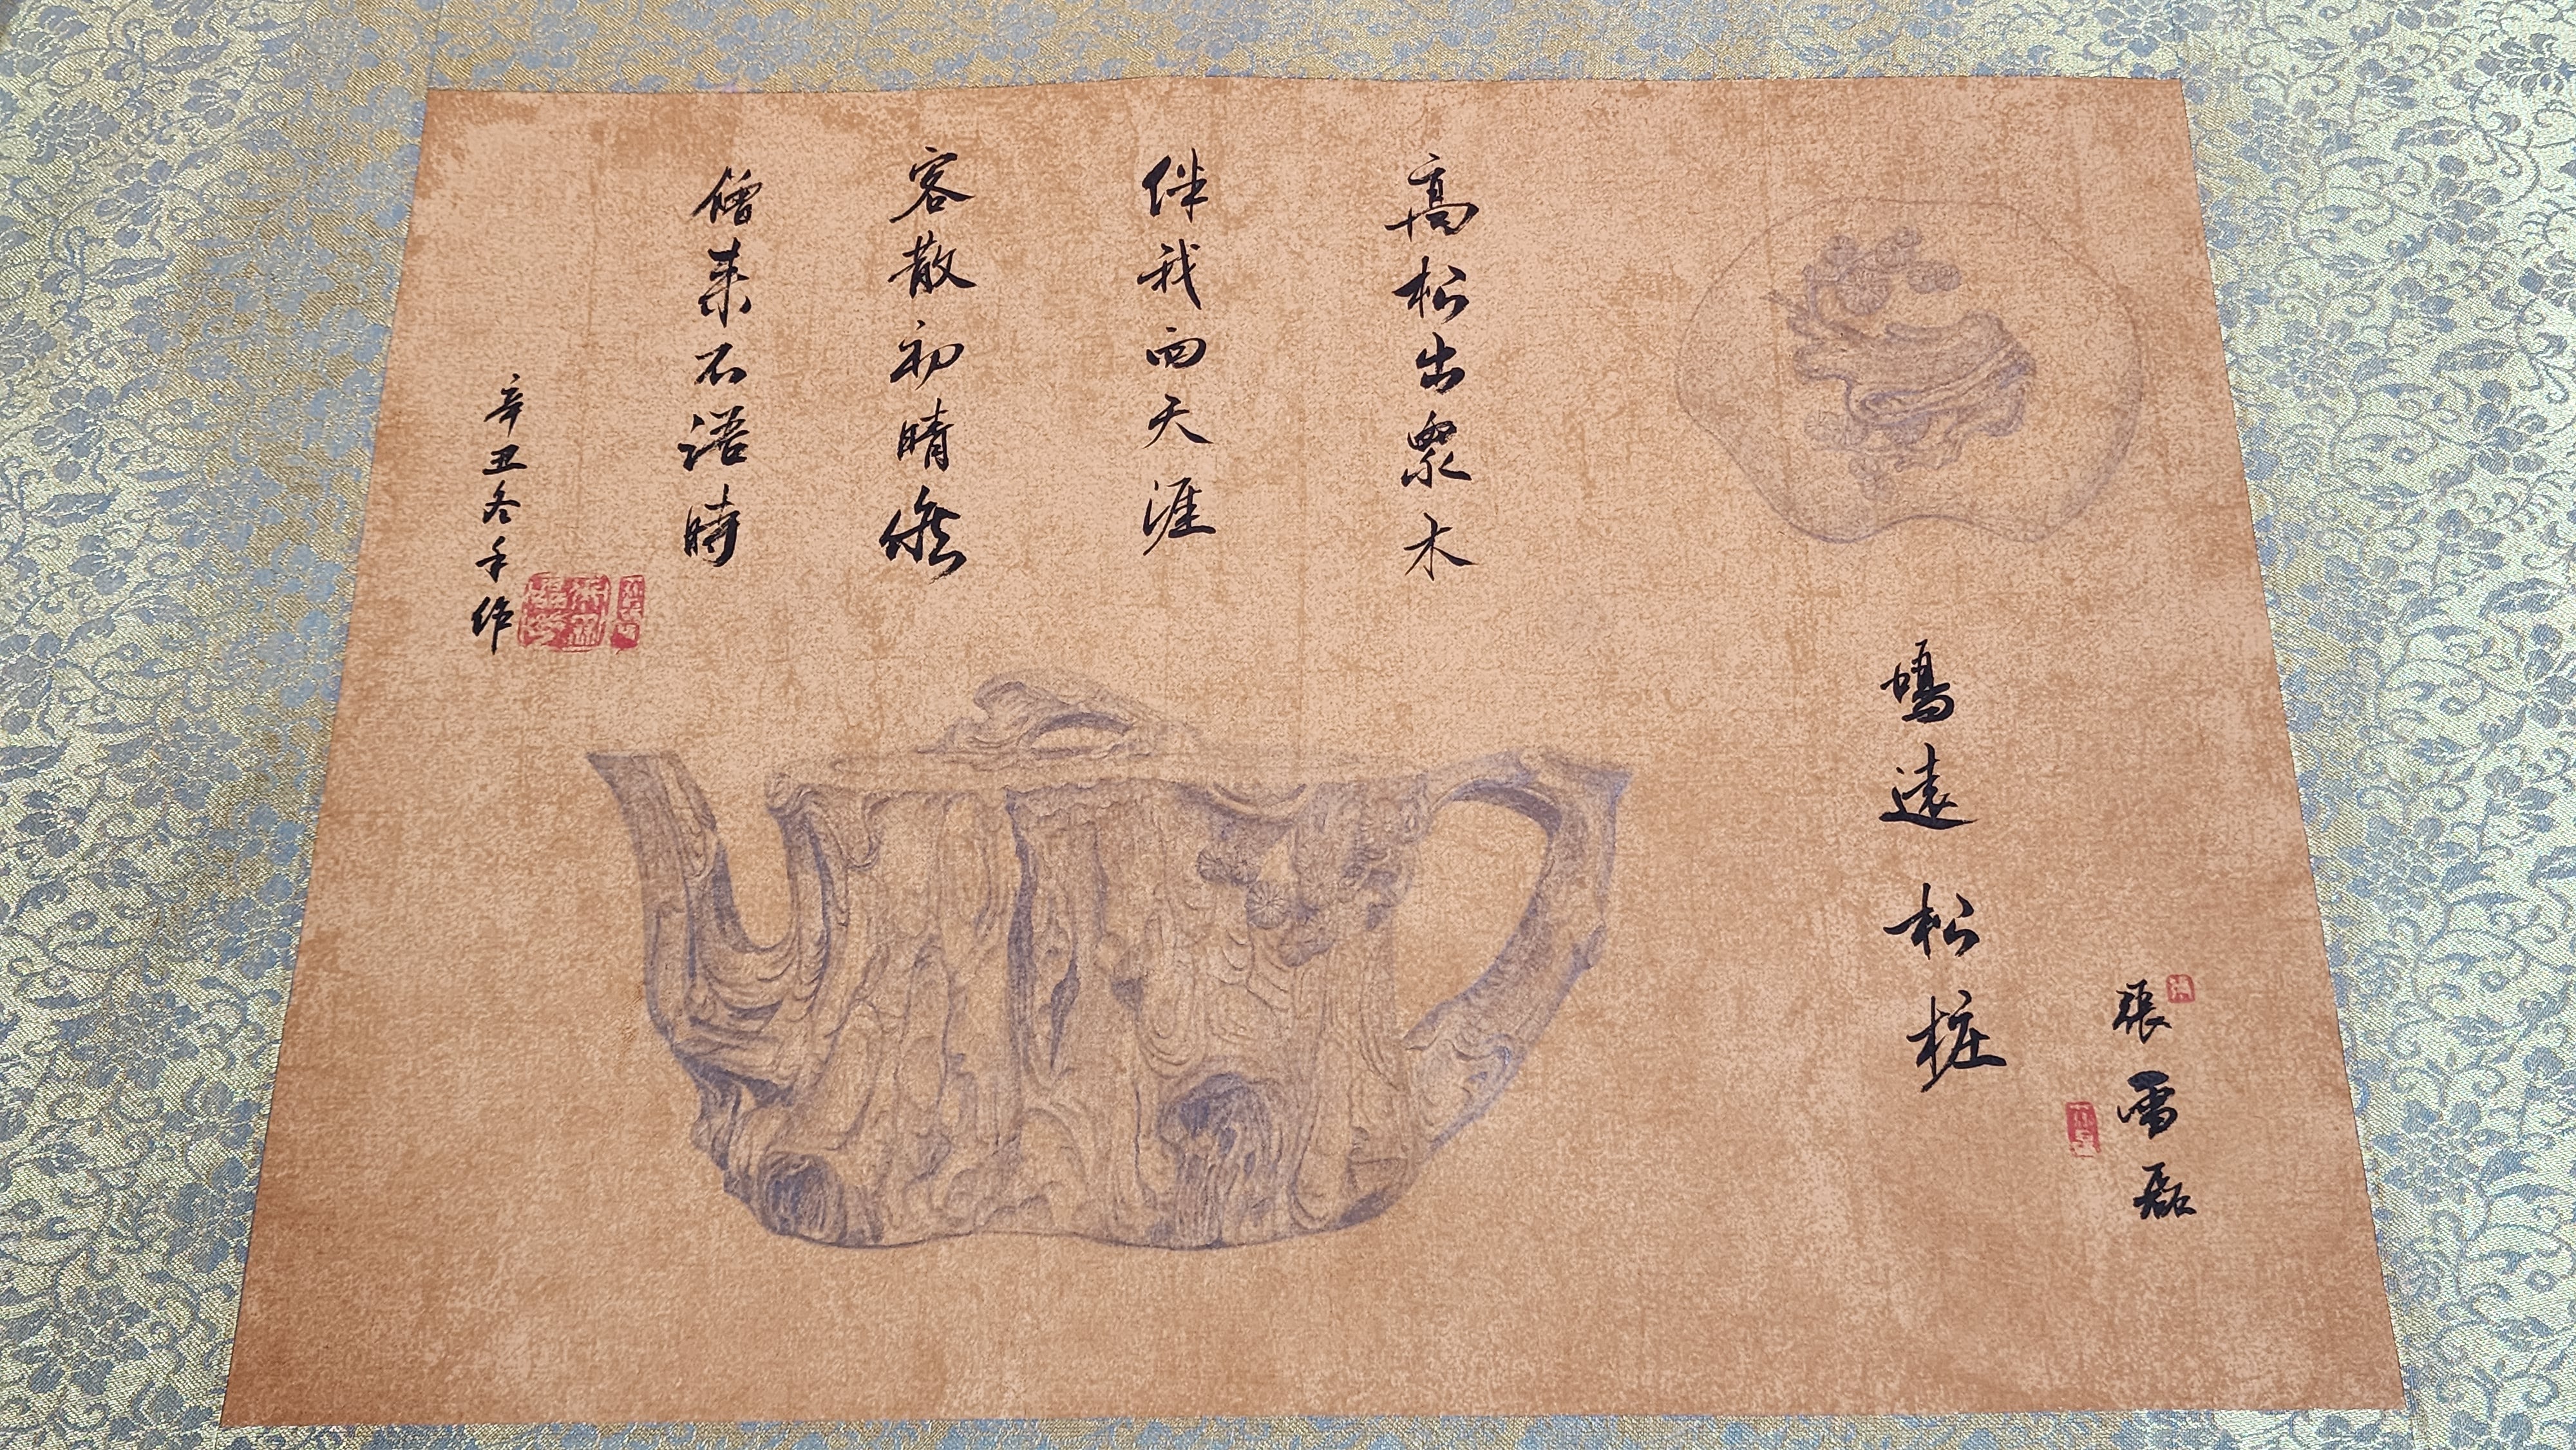 張磊
鳴遠 松桩
高松出衆木
伴我向天涯
客散初晴候
僧来不語時
辛丑冬手作